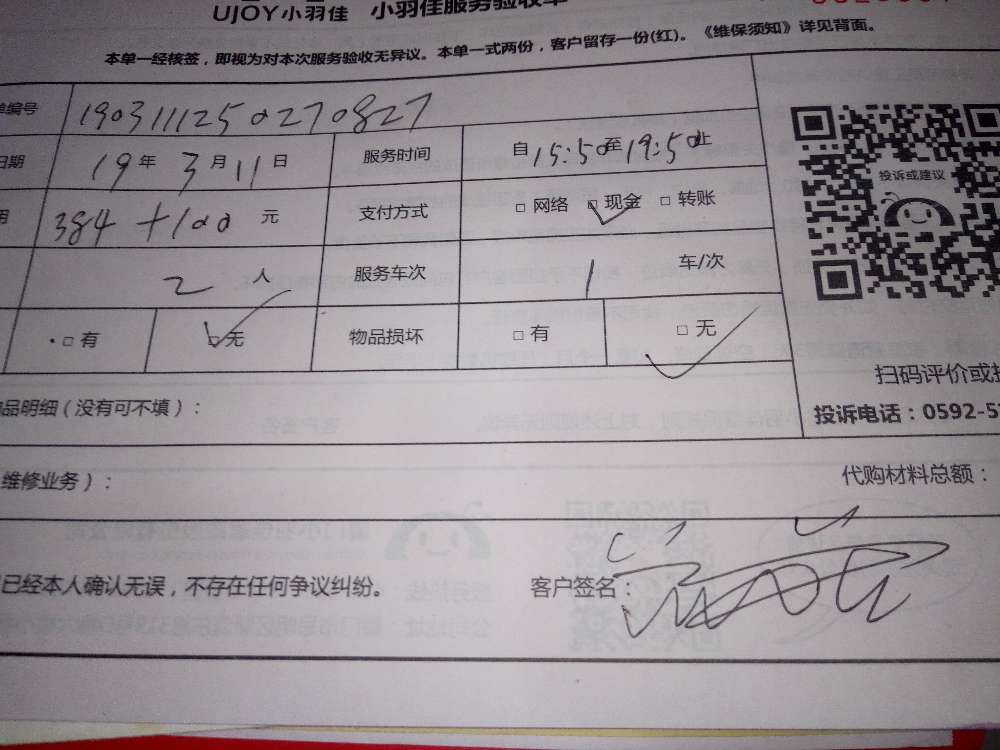 UJOY小羽佳 小羽佳服务验收单
本单一经核签，即视为对本次服务验收无异议。本单一式两份，客户留存一份(红)。《维保须知》详见背面。
编号 1903111250270827
日期 19年 3月11日 服务时间 自15:50至19:50止
投诉或建议
384+100 元 支付方式 □网络 □现金 □转账
2 人 服务车次 1 车/次
□有 □无 物品损坏 □有 □无
扫码评价或
品明细（没有可不填）：
投诉电话：0592-5
维修业务）：
代购材料总额：
已经本人确认无误，不存在任何争议纠纷。 客户签名：